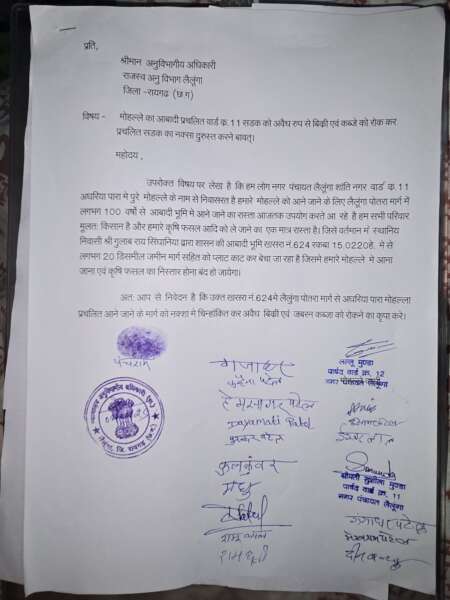 प्रति,
श्रीमान अनुविभागीय अधिकारी
राजस्व अनु विभाग लैलुंगा
जिला -रायगढ़ (छ.ग)
विषय - मोहल्ले का आबादी प्रचलित वार्ड क्र.11 सडक को अवैध रुप से बिक्री एवं कब्जे को रोक कर
प्रचलित सडक का नक्सा दुरुस्त करने बावत्।
महोदय ,
उपरोक्त विषय पर लेख है कि हम लोग नगर पंचायत लैलुंगा शांति नगर वार्ड क्र.11
अघरिया पारा मे पुरे मोहल्ले के नाम से निवासरत है हमारे मोहल्ले को आने जाने के लिए लैलुंगा पोतरा मार्ग में
लगभग 100 वर्षो से आबादी भूमि मे आने जाने का रास्ता आजतक उपयोग करते आ रहे है हम सभी परिवार
मूलतः किसान है और हमारे कृषि फसल आदि को ले जाने का एक मात्र रास्ता है। जिसे वर्तमान में स्थानिय
निवासी श्री गुलाब राय सिंघानिया द्वारा शासन की आबादी भूमि खासरा नं.624 रकबा 15.0220हे. मे से
लगभग 20 डिसमील जमीन मार्ग सहित को प्लाट काट कर बेचा जा रहा है जिसमे हमारे मोहल्ले मे आना
जाना एवं कृषि फसल का निस्तार होना बंद हो जायेगा।
अतः आप से निवेदन है कि उक्त खासरा नं.624मे लैलुंगा पोतरा मार्ग से अघरिया पारा मोहल्ला
प्रचलित आने जाने के मार्ग को नक्शा मे चिन्हांकित कर अवैध बिक्री एवं जबरन कब्जा को रोकने का कृपा करे।
पंचराम
हेमसागर पटेल
Dayamati Patel
फुलकुंवर
मधु
लल्लू मुण्डा
पार्षद वार्ड क्र. 12
नगर पंचायत लैलुंगा
श्रीमती सुशीला मुण्डा
पार्षद वार्ड क्र. 11
नगर पंचायत लैलुंगा